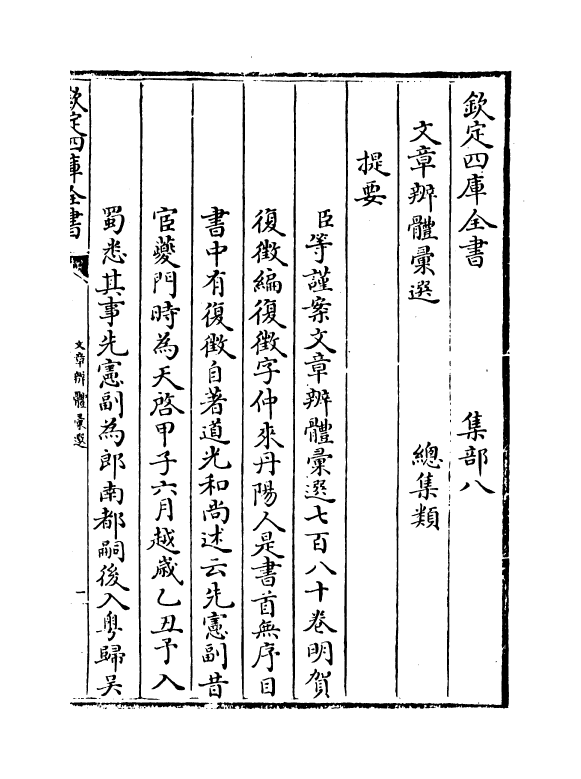 欽定四庫全書　　　集部八
文章辨體彙選　　　總集類
提要
臣等謹案文章辨體彙選七百八十卷明賀
復徵編復徵字仲來丹陽人是書首無序目
書中有復徵自著道光和尚述云先憲副昔
宦夔門時為天啓甲子六月越嵗乙丑予入
蜀悉其事先憲副為郎南都嗣後入粤歸吴
欽定四庫全書
文章辨體彙選
一